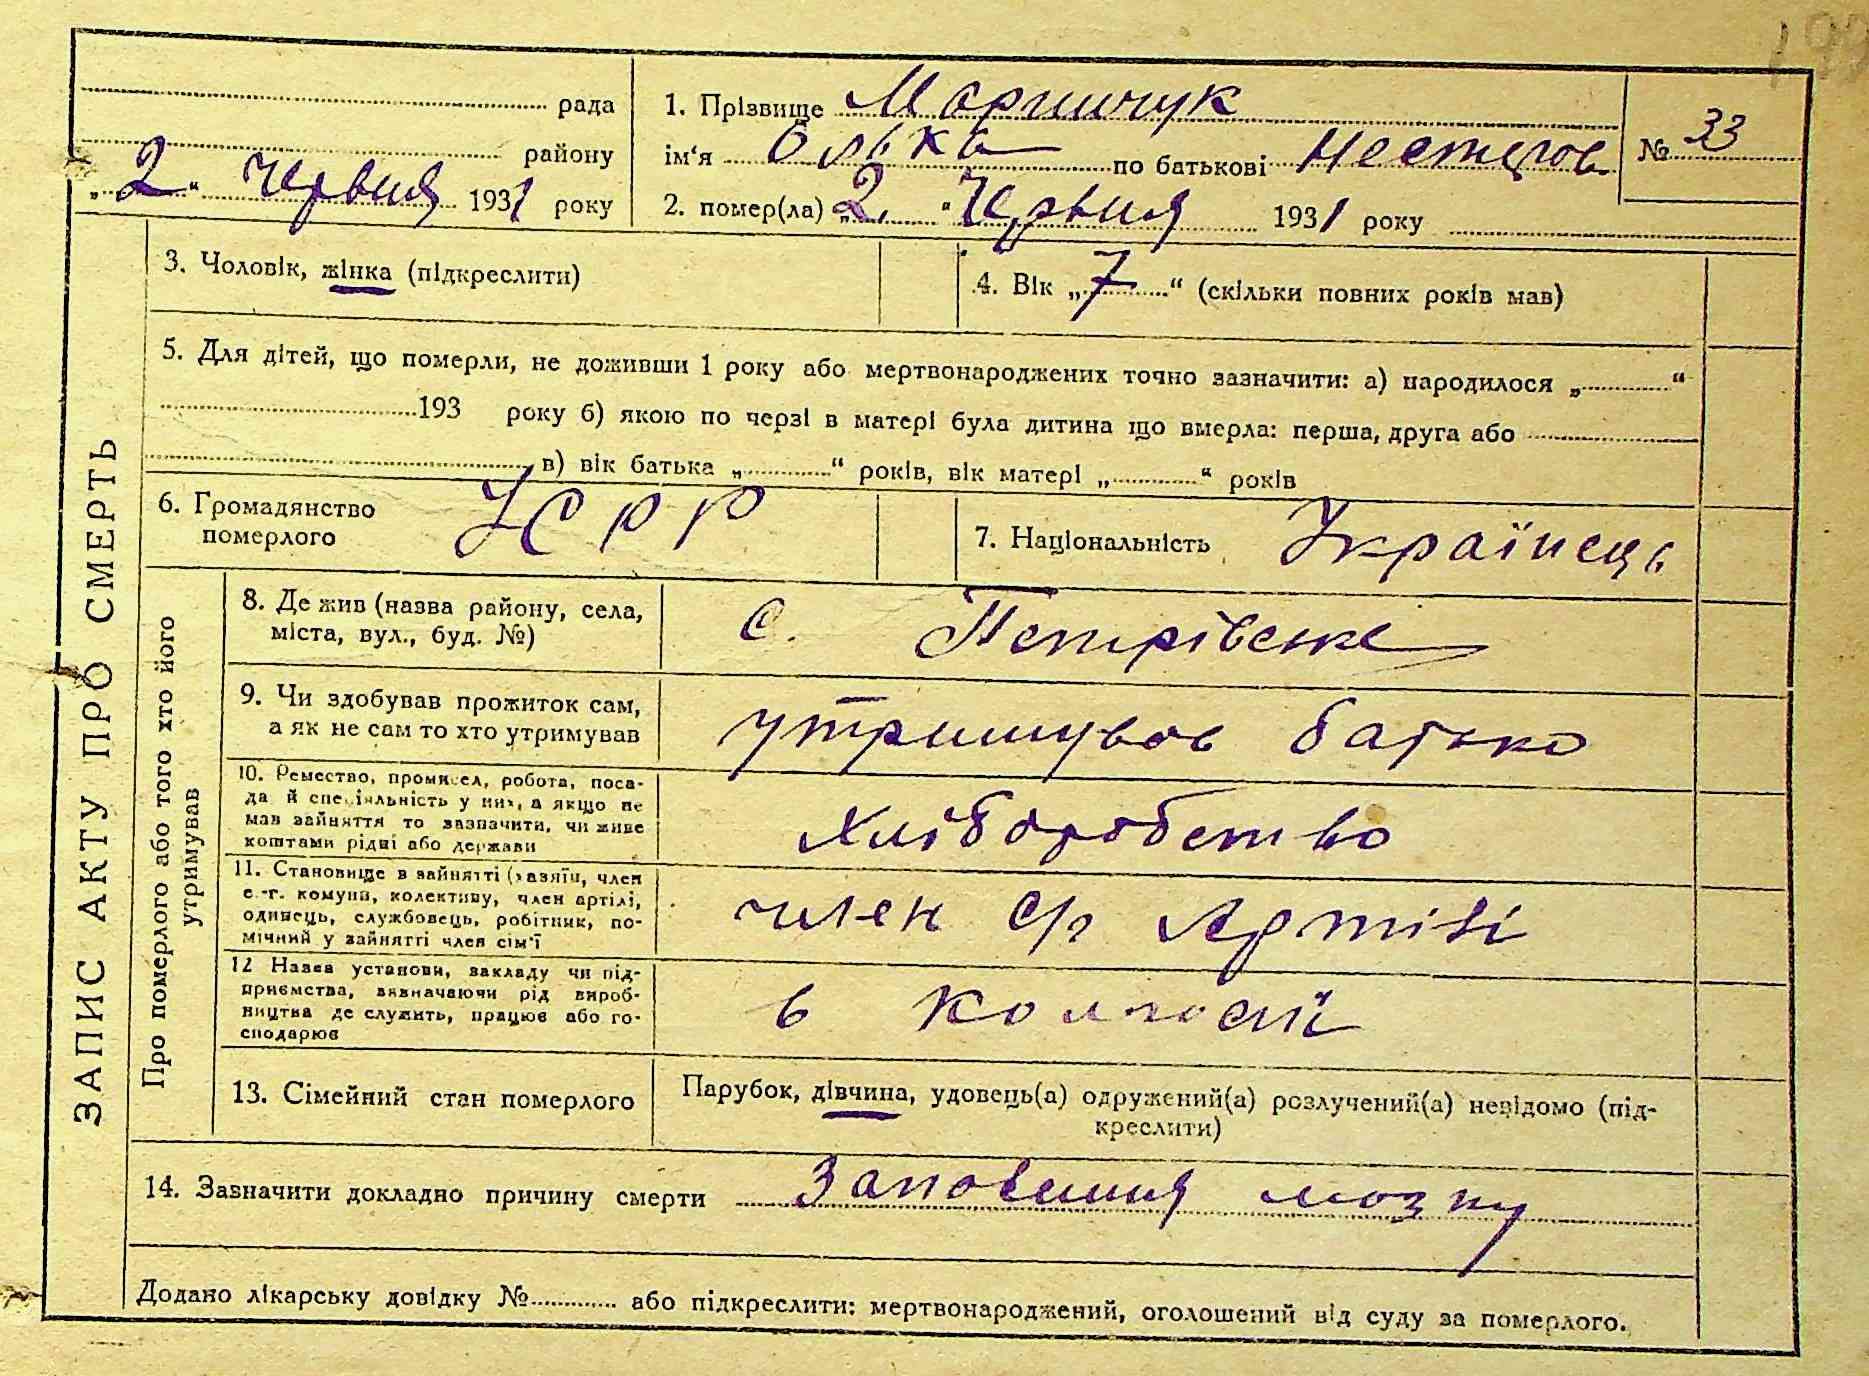 199
рада
району
„2“ червня 1931 року
1. Прізвище Маринчук
ім'я Олька по батькові Нестеров
2. помер(ла) „2.“ Червня 1931 року
№ 33
ЗАПИС АКТУ ПРО СМЕРТЬ
3. Чоловік, жінка (підкреслити)
4. Вік „7“ (скільки повних років мав)
5. Для дітей, що померли, не доживши 1 року або мертвонароджених точно зазначити: а) народилося „ “
193 року б) якою по черзі в матері була дитина що вмерла: перша, друга або
в) вік батька „ “ років, вік матері „ “ років
6. Громадянство
померлого УСРР
7. Національність Українець
Про померлого або того хто його
утримував
8. Де жив (назва району, села,
міста, вул., буд. №)
с. Петрівське
9. Чи здобував прожиток сам,
а як не сам то хто утримував
утримував батько
10. Ремество, промисел, робота, поса-
да й спеціяльність у них, а якщо не
мав зайняття то зазначити, чи живе
коштами рідні або держави
Хліборобство
11. Становище в зайнятті (хазяїн, член
с.-г. комуни, колективу, член артілі,
одинець, службовець, робітник, по-
мічний у зайнятті член сім'ї
член с/г Артілі
12 Назва установи, закладу чи під-
приємства, визначаючи рід вироб-
ництва де служить, працює або го-
сподарює
в колгоспі
13. Сімейний стан померлого
Парубок, дівчина, удовець(а) одружений(а) розлучений(а) невідомо (під-
креслити)
14. Зазначити докладно причину смерти Заповення мозку
Додано лікарську довідку № або підкреслити: мертвонароджений, оголошений від суду за померлого.